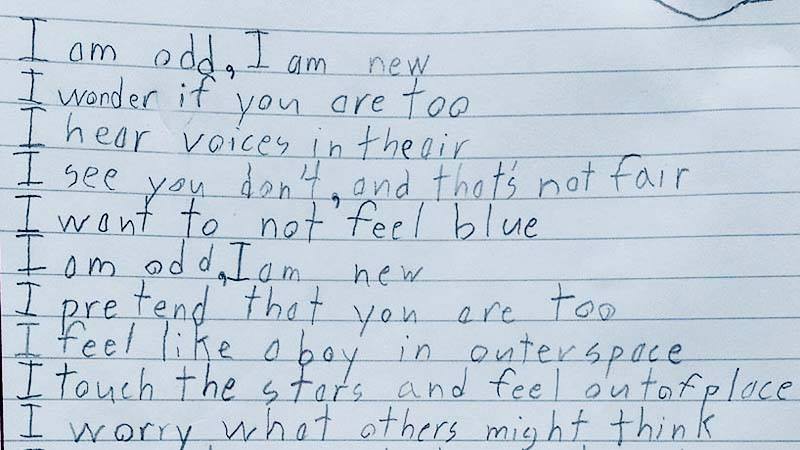 I am odd, I am new
I wonder if you are too
I hear voices in the air
I see you don't, and that's not fair
I want to not feel blue
I am odd, I am new
I pretend that you are too
I feel like a boy in outerspace
I touch the stars and feel out of place
I worry what others might think